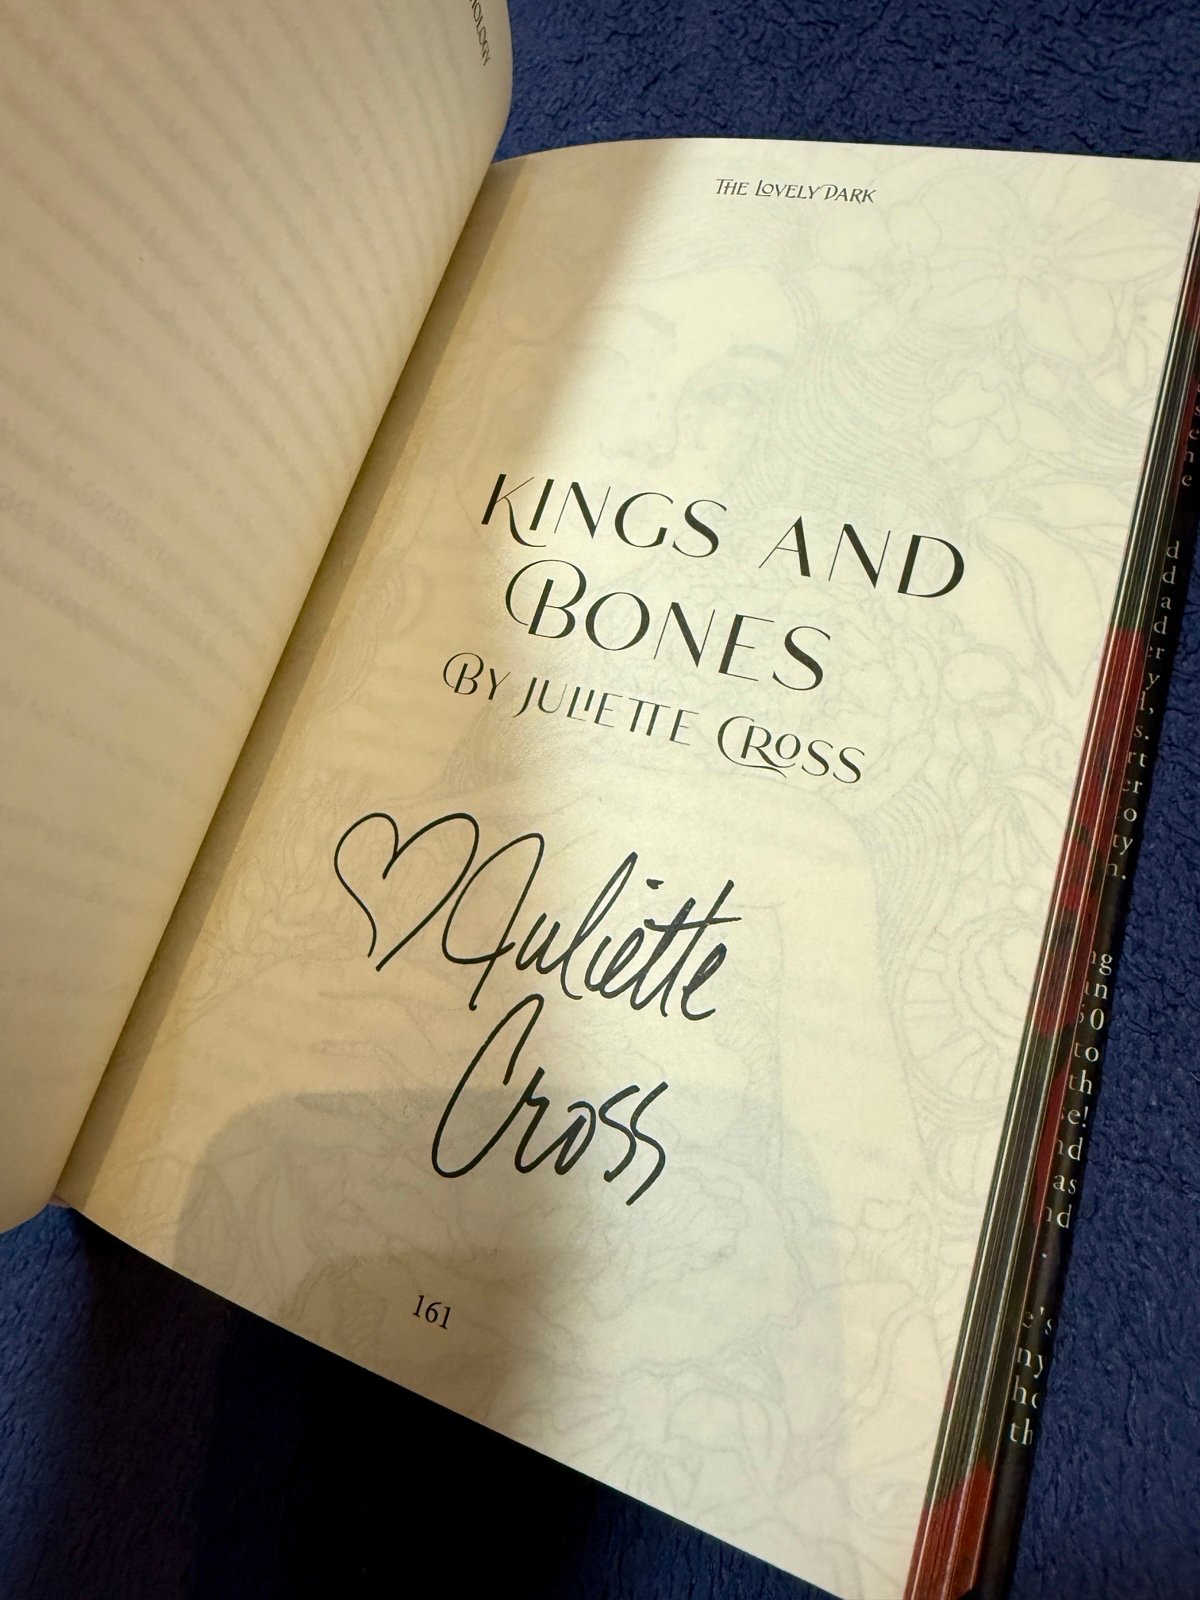 THE LOVELY DARK
KINGS AND
BONES
BY JULIETTE CROSS
♡ Juliette
Cross
161